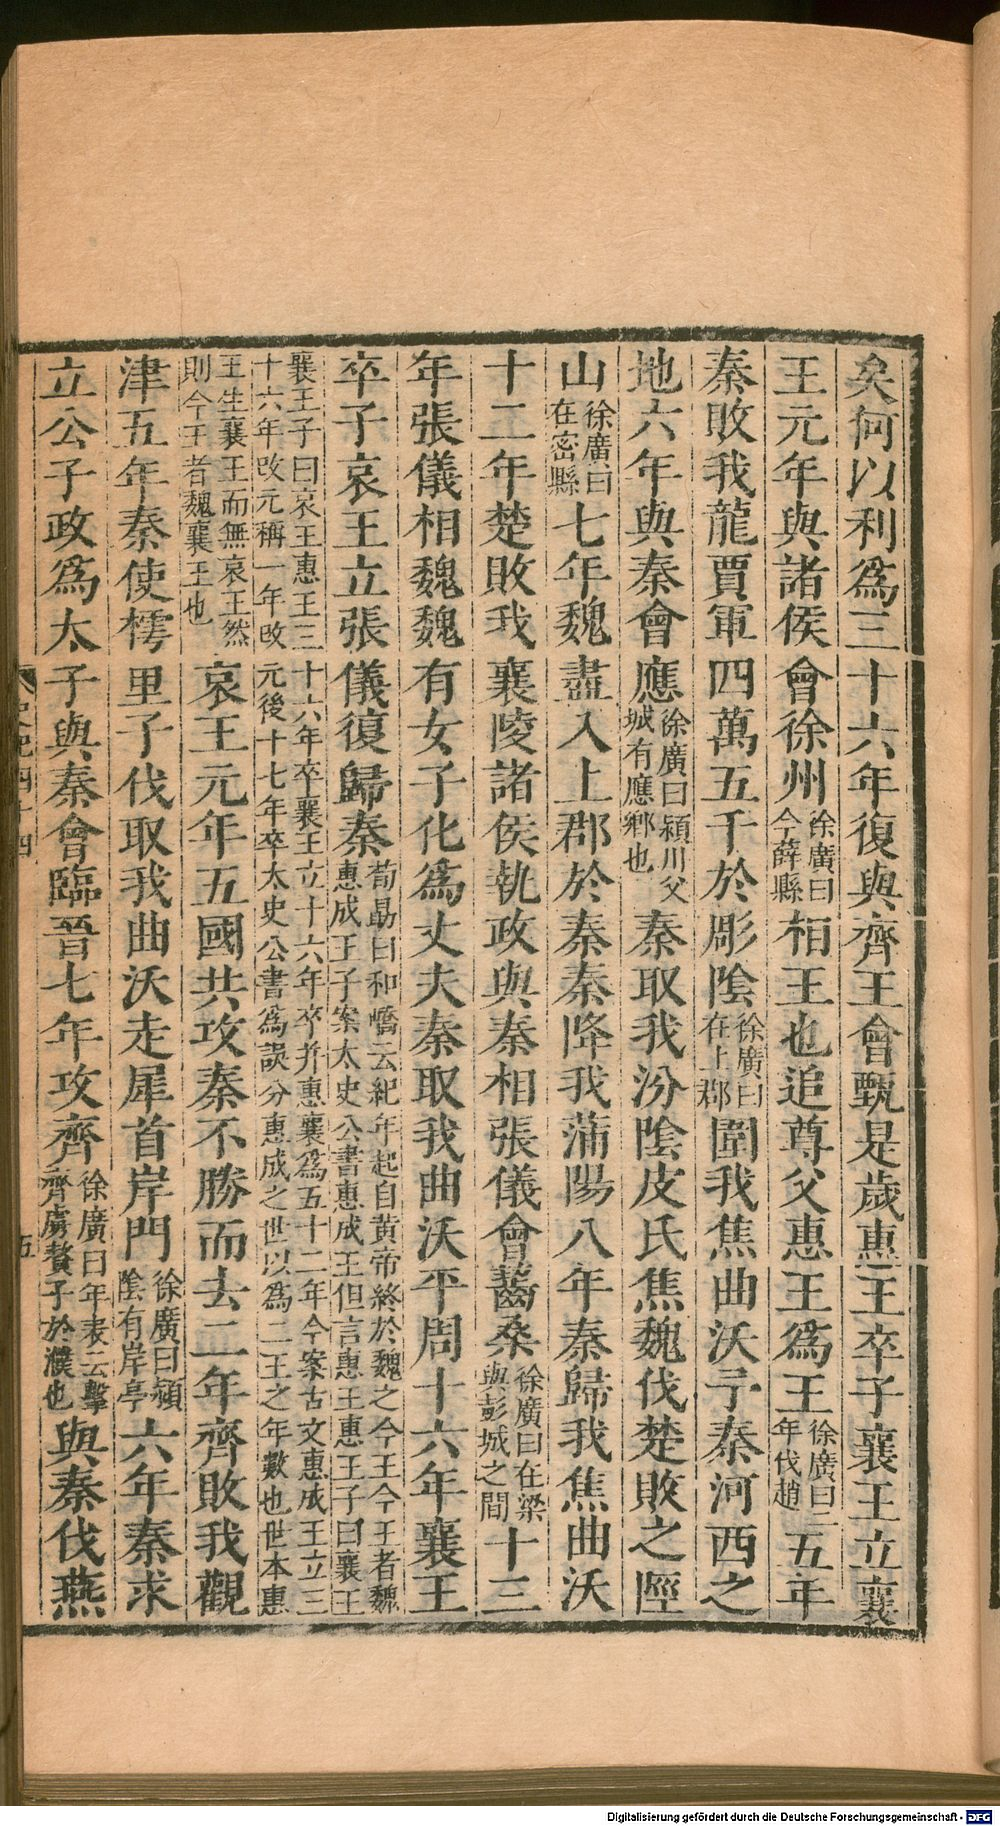 矣何以利爲三十六年復與齊王會甄是歲惠王卒子襄王立襄
王元年與諸侯會徐州徐廣曰今薛縣相王也追尊父惠王爲王徐廣曰二年伐趙五年
秦敗我龍賈軍四萬五千於彫陰徐廣曰在上郡圍我焦曲沃予秦河西之
地六年與秦會應徐廣曰潁川父城有應鄉也秦取我汾陰皮氏焦魏伐楚敗之陘
山徐廣曰在密縣七年魏盡入上郡於秦秦降我蒲陽八年秦歸我焦曲沃
十二年楚敗我襄陵諸侯執政與秦相張儀會齧桑徐廣曰在梁與彭城之間十三
年張儀相魏魏有女子化爲丈夫秦取我曲沃平周十六年襄王
卒子哀王立張儀復歸秦荀勗曰和嶠云紀年起自黄帝終於魏之今王今王者魏惠成王子案太史公書惠成王但言惠王惠王子曰襄王
襄王子曰哀王惠王三十六年卒襄王立十六年卒并惠襄爲五十二年今案古文惠成王立三
十六年改元稱一年改元後十七年卒太史公書爲誤分惠成之世以爲二王之年數也世本惠
王生襄王而無哀王然則今王者魏襄王也哀王元年五國共攻秦不勝而去二年齊敗我觀
津五年秦使樗里子伐取我曲沃走犀首岸門徐廣曰潁陰有岸亭六年秦求
立公子政爲太子與秦會臨晉七年攻齊徐廣曰年表云擊齊虜贅子於濮也與秦伐燕
史記四十四
五
Digitalisierung gefördert durch die Deutsche Forschungsgemeinschaft - DFG